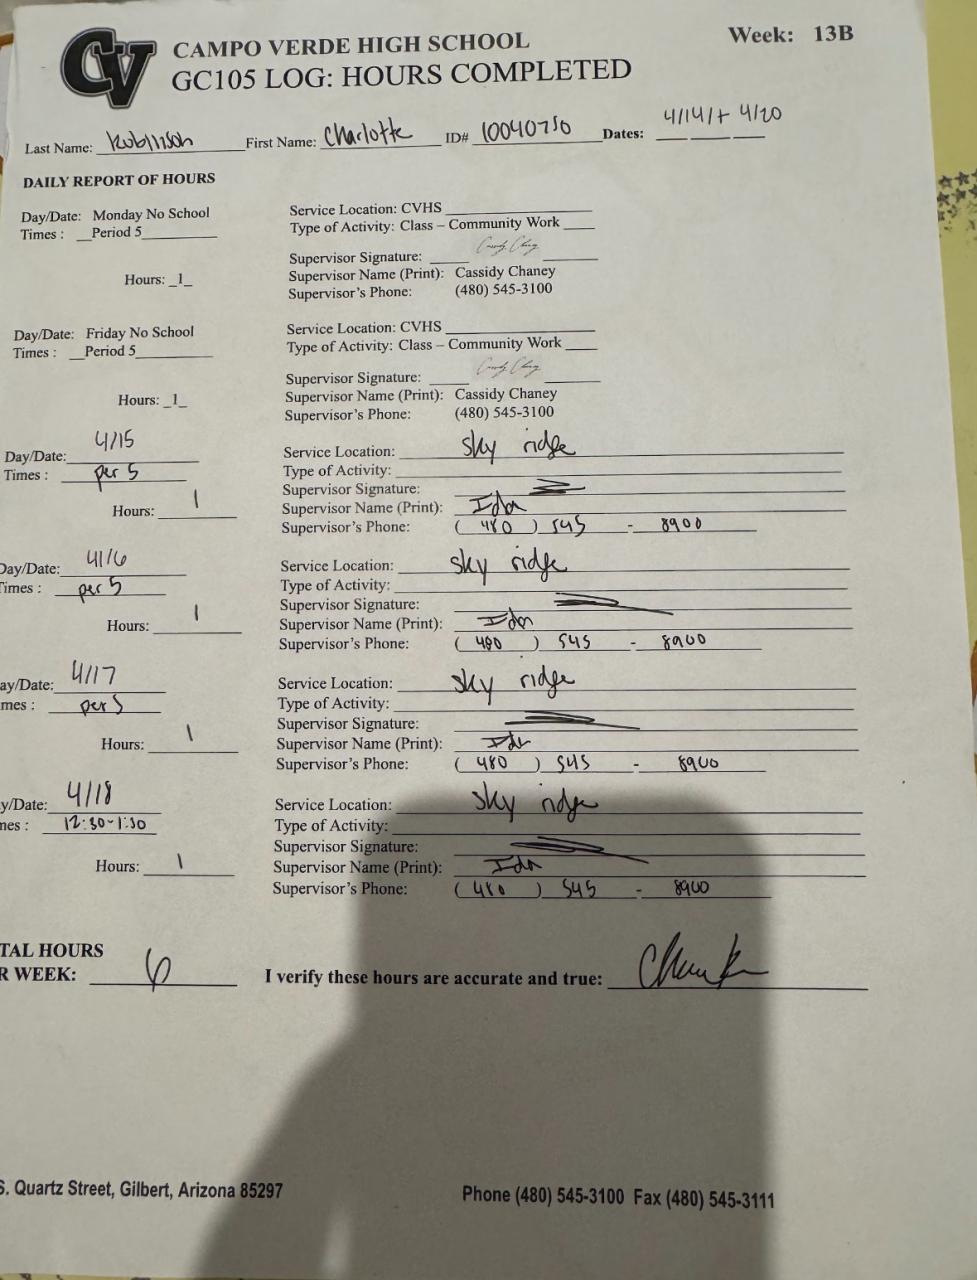 CV
CAMPO VERDE HIGH SCHOOL
Week: 13B
GC105 LOG: HOURS COMPLETED
Last Name: Robinson First Name: Charlotte ID# 10040750 Dates: 4/14/+ 4/20
DAILY REPORT OF HOURS
Day/Date: Monday No School
Times : __Period 5
Hours: _1_
Service Location: CVHS
Type of Activity: Class – Community Work
Supervisor Signature:
Supervisor Name (Print): Cassidy Chaney
Supervisor's Phone: (480) 545-3100
Day/Date: Friday No School
Times : __Period 5
Hours: _1_
Service Location: CVHS
Type of Activity: Class – Community Work
Supervisor Signature:
Supervisor Name (Print): Cassidy Chaney
Supervisor's Phone: (480) 545-3100
Day/Date: 4/15
Times : per 5
Hours: 1
Service Location: sky ridge
Type of Activity:
Supervisor Signature:
Supervisor Name (Print):
Supervisor's Phone: (480) 545 - 8900
Day/Date: 4/16
Times : per 5
Hours: 1
Service Location: sky ridge
Type of Activity:
Supervisor Signature:
Supervisor Name (Print):
Supervisor's Phone: (480) 545 - 8900
ay/Date: 4/17
mes : per 5
Hours: 1
Service Location: sky ridge
Type of Activity:
Supervisor Signature:
Supervisor Name (Print):
Supervisor's Phone: (480) 545 - 8900
y/Date: 4/18
nes : 12:30-1:30
Hours: 1
Service Location: sky ridge
Type of Activity:
Supervisor Signature:
Supervisor Name (Print):
Supervisor's Phone: (480) 545 - 8900
TAL HOURS
R WEEK: 6 I verify these hours are accurate and true:
S. Quartz Street, Gilbert, Arizona 85297
Phone (480) 545-3100 Fax (480) 545-3111